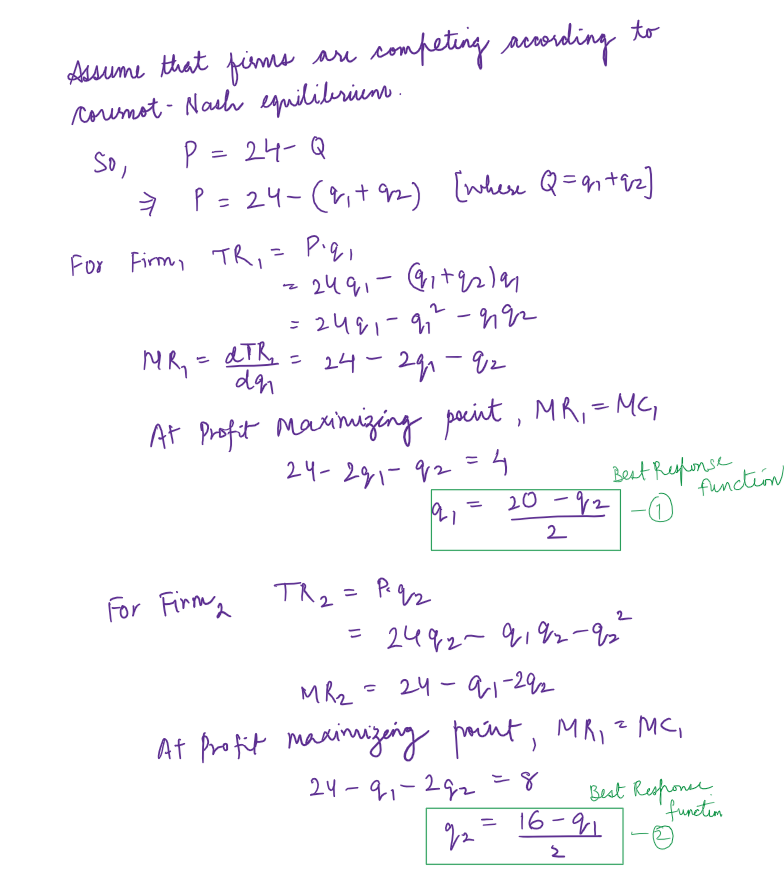 Assume that firms are competing according to
Cournot - Nash equilibrium.
So, P = 24 - Q
⇒ P = 24 - (q₁ + q₂) [where Q = q₁ + q₂]
For Firm₁ TR₁ = P·q₁
= 24q₁ - (q₁ + q₂)q₁
= 24q₁ - q₁² - q₁q₂
MR₁ = dTR₁/dq₁ = 24 - 2q₁ - q₂
At Profit Maximizing point, MR₁ = MC₁
24 - 2q₁ - q₂ = 4
q₁ = (20 - q₂)/2 Best Response function - ①
For Firm₂ TR₂ = P·q₂
= 24q₂ - q₁q₂ - q₂²
MR₂ = 24 - q₁ - 2q₂
At Profit maximizing point, MR₁ = MC₁
24 - q₁ - 2q₂ = 8
q₂ = (16 - q₁)/2 Best Response function - ②